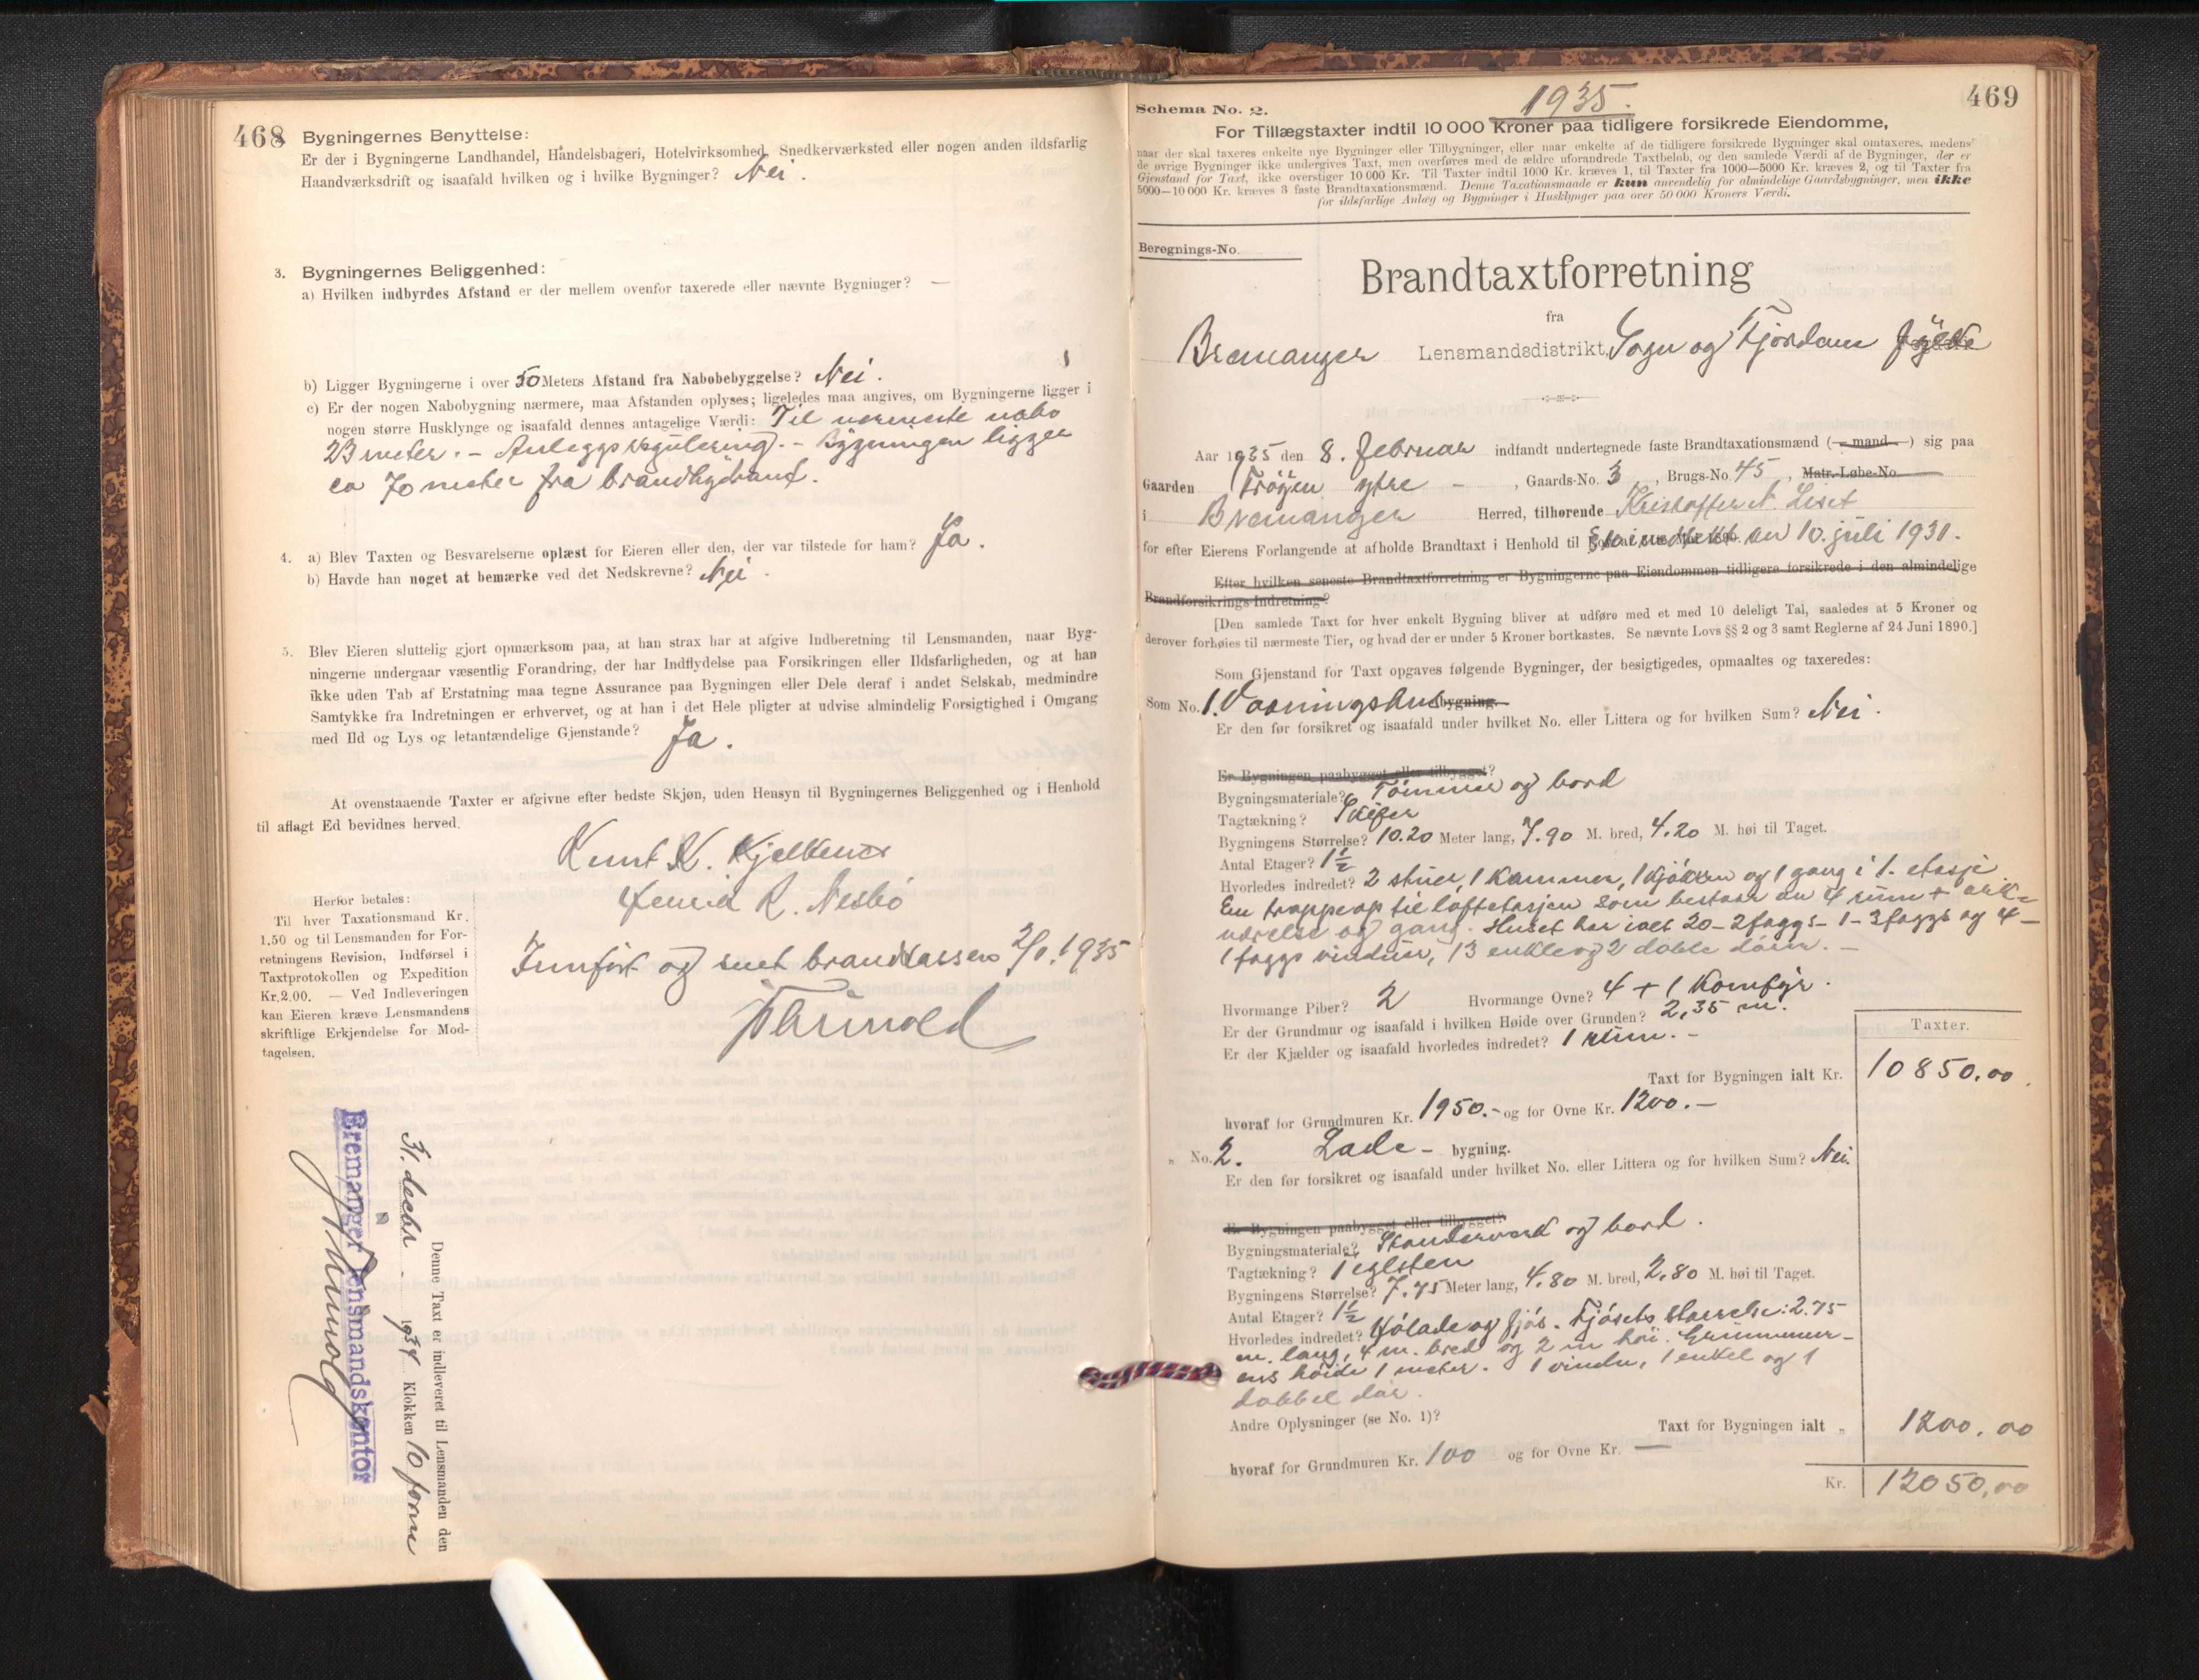 468
Bygningernes Benyttelse:
Er der i Bygningerne Landhandel, Handelsbageri, Hotelvirksomhed, Snedkerværksted eller nogen anden ildsfarlig
Haandværksdrift og isaafald hvilken og i hvilke Bygninger? Nei.
3. Bygningernes Beliggenhed:
a) Hvilken indbyrdes Afstand er der mellem ovenfor taxerede eller nævnte Bygninger? —
b) Ligger Bygningerne i over 50 Meters Afstand fra Nabobebyggelse? Nei.
c) Er der nogen Nabobygning nærmere, maa Afstanden oplyses; ligeledes maa angives, om Bygningerne ligger i
nogen større Husklynge og isaafald dennes antagelige Værdi: Til nærmeste nabo
23 meter. - Anleggsregulering. - Bygningen ligger
ca 70 meter fra brandhydrant.
4. a) Blev Taxten og Besvarelserne oplæst for Eieren eller den, der var tilstede for ham? Ja.
b) Havde han noget at bemærke ved det Nedskrevne? Nei.
5. Blev Eieren sluttelig gjort opmærksom paa, at han strax har at afgive Indberetning til Lensmanden, naar Byg-
ningerne undergaar væsentlig Forandring, der har Indflydelse paa Forsikringen eller Ildsfarligheden, og at han
ikke uden Tab af Erstatning maa tegne Assurance paa Bygningen eller Dele deraf i andet Selskab, medmindre
Samtykke fra Indretningen er erhvervet, og at han i det Hele pligter at udvise almindelig Forsigtighed i Omgang
med Ild og Lys og letantændelige Gjenstande? Ja.
At ovenstaaende Taxter er afgivne efter bedste Skjøn, uden Hensyn til Bygningernes Beliggenhed og i Henhold
til aflagt Ed bevidnes herved.
Knut K. Kjelkenes
R. Nesbö
Innfört og sent brandkassen 2/1. 1935
Herfor betales:
Til hver Taxationsmand Kr.
1.50 og til Lensmanden for For-
retningens Revision, Indførsel i
Taxtprotokollen og Expedition
Kr.2.00. — Ved Indleveringen
kan Eieren kræve Lensmandens
skriftlige Erkjendelse for Mod-
tagelsen.
Denne Taxt er indleveret til Lensmanden den
31. decbr - 1934 Klokken 10 form
Bremanger lensmandskontor
469
1935.
Schema No. 2.
For Tillægstaxter indtil 10 000 Kroner paa tidligere forsikrede Eiendomme,
naar der skal taxeres enkelte nye Bygninger eller Tilbygninger, eller naar enkelte af de tidligere forsikrede Bygninger skal omtaxeres, medens
de øvrige Bygninger ikke undergives Taxt, men overføres med de ældre uforandrede Taxtbeløb, og den samlede Værdi af de Bygninger, der er
Gjenstand for Taxt, ikke overstiger 10 000 Kr. Til Taxter indtil 1000 Kr. kræves 1, til Taxter fra 1000—5000 Kr. kræves 2, og til Taxter fra
5000—10 000 Kr. kræves 3 faste Brandtaxationsmænd. Denne Taxationsmaade er kun anvendelig for almindelige Gaardsbygninger, men ikke
for ildsfarlige Anlæg og Bygninger i Husklynger paa over 50 000 Kroners Værdi.
Beregnings-No.
Brandtaxtforretning
fra
Bremanger Lensmandsdistrikt, Sogn og Fjordane fylke
Aar 1935 den 8. februar indfandt undertegnede faste Brandtaxationsmænd (— mand —) sig paa
Gaarden Fröyen ytre - , Gaards-No. 3, Brugs-No. 45, Matr.-Løbe-No.
i Bremanger Herred, tilhørende Kristoffer N. Liset
for efter Eierens Forlangende at afholde Brandtaxt i Henhold til av 10. juli 1931.
Efter hvilken seneste Brandtaxtforretning er Bygningerne paa Eiendommen tidligere forsikrede i den almindelige
Brandforsikrings-Indretning?
[Den samlede Taxt for hver enkelt Bygning bliver at udføre med et med 10 deleligt Tal, saaledes at 5 Kroner og
derover forhøies til nærmeste Tier, og hvad der er under 5 Kroner bortkastes. Se nævnte Lovs §§ 2 og 3 samt Reglerne af 24 Juni 1890.]
Som Gjenstand for Taxt opgaves følgende Bygninger, der besigtigedes, opmaaltes og taxeredes:
Som No. 1. Vaaningshus bygning.
Er den før forsikret og isaafald under hvilket No. eller Littera og for hvilken Sum? Nei.
Er Bygningen paabygget eller tilbygget?
Bygningsmateriale? Tömmer og bord
Tagtækning? Skifer
Bygningens Størrelse? 10.20 Meter lang, 7.90 M. bred, 4.20 M. høi til Taget.
Antal Etager? 1½
Hvorledes indredet? 2 stuer, 1 kammer, 1 kjökken og 1 gang i 1. etasje
En trappe op til loftetasjen som bestaar av 4 rum + ark-
værelse og gang. Huset har ialt 20 - 2 faggs - 1 - 3 faggs og 4 -
1 faggs vinduer, 13 enkle og 2 doble dörer. -
Hvormange Piber? 2 Hvormange Ovne? 4 + 1 Komfyr.
Er der Grundmur og isaafald i hvilken Høide over Grunden? 2,35 m.
Er der Kjælder og isaafald hvorledes indredet? 1 rum. -
Taxter.
Taxt for Bygningen ialt Kr. 10850.00
hvoraf for Grundmuren Kr. 1950.- og for Ovne Kr. 1200.-
„ No. 2. Lade - bygning.
Er den før forsikret og isaafald under hvilket No. eller Littera og for hvilken Sum? Nei.
Er Bygningen paabygget eller tilbygget?
Bygningsmateriale? Standerverk og bord.
Tagtækning? Teglsten
Bygningens Størrelse? 7.75 Meter lang, 4.80 M. bred, 2,80 M. høi til Taget.
Antal Etager? 1½
Hvorledes indredet? Hölade og fjös. Fjösets störrelse: 2.75
m. lang, 4 m. bred og 2 m höi. Grunnmur-
ens höide 1 meter. 1 vindu, 1 enkel og 1
dobbel dör.
Andre Oplysninger (se No. 1)?
Taxt for Bygningen ialt „ 1200.00
hvoraf for Grundmuren Kr. 100 og for Ovne Kr. —
Kr. 12050,00